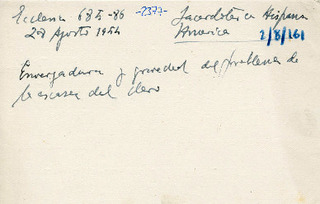 Ecclesia 685-86 -2377- Sacerdotes a Hispano
28 Agosto 1954 America 2/8/161
Envergadura y gravedad del problema de
la escasez del clero